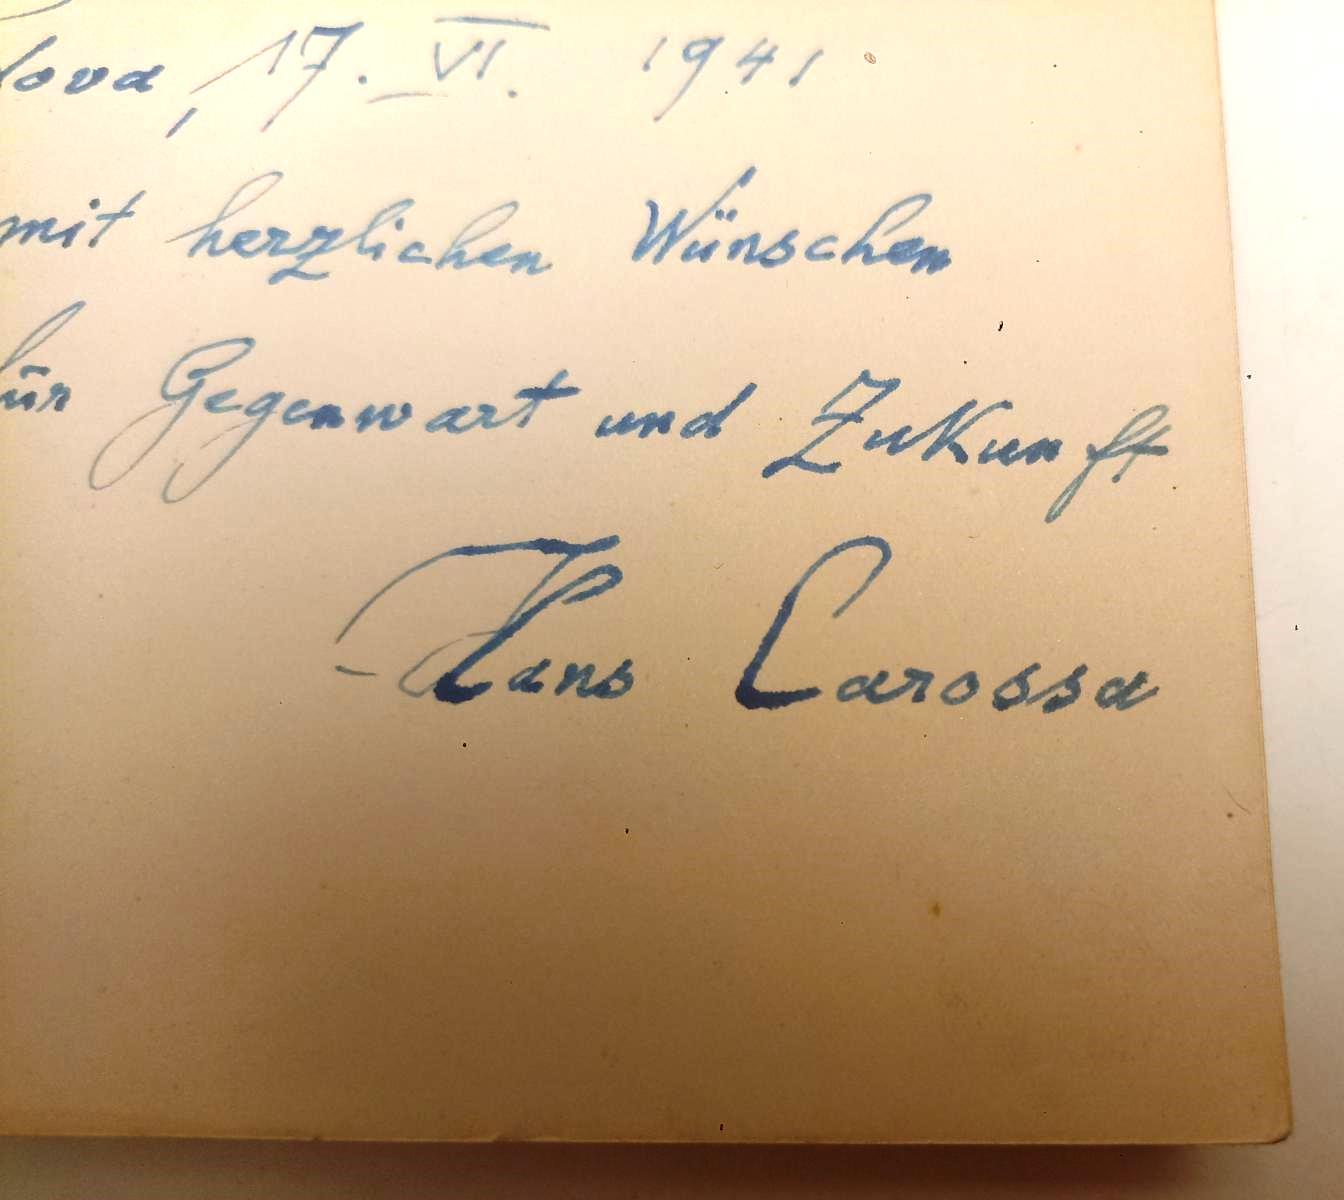 dova, 17. VI. 1941
mit herzlichen Wünschen
für Gegenwart und Zukunft
Hans Carossa